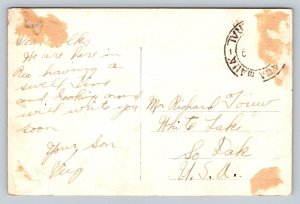 Dear Folks
We are here in
Reo having a
swell time
and looking around
we'll write you
soon
Your Son
Verg
Mr Richard Touw
White Lake
So Dak
U.S.A.